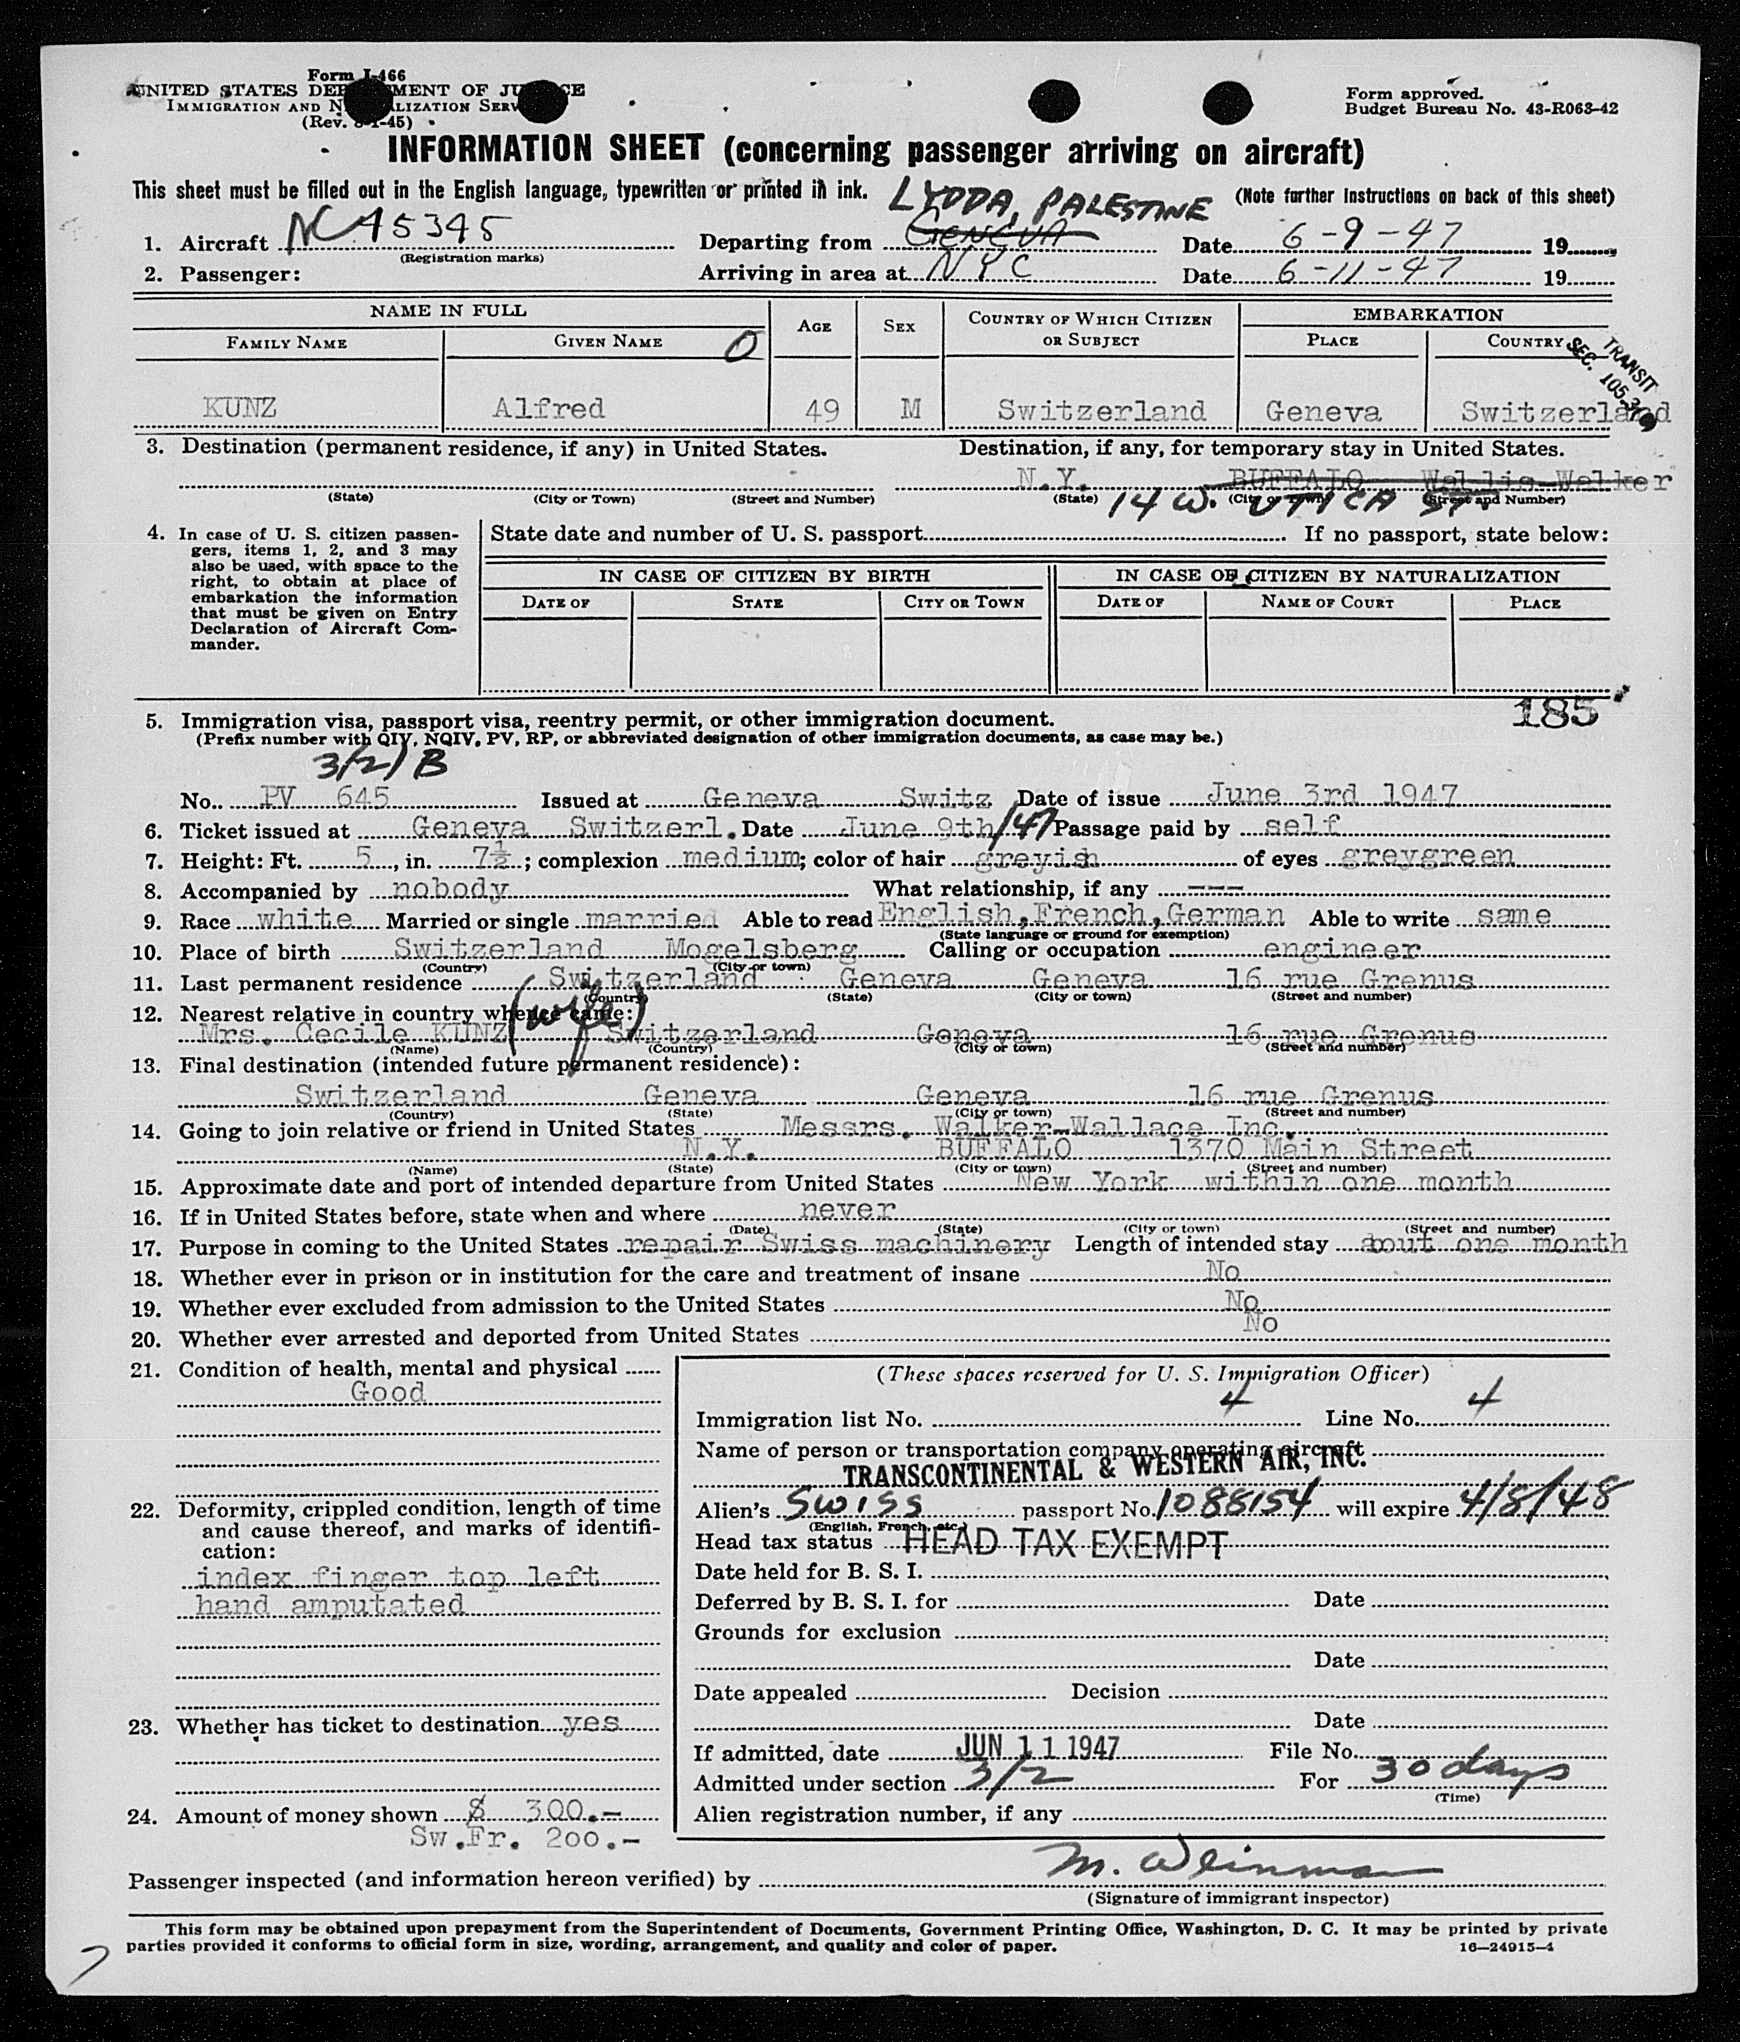 Form I-466
UNITED STATES DEPARTMENT OF JUSTICE
IMMIGRATION AND NATURALIZATION SERVICE
(Rev. 8-1-45)
Form approved.
Budget Bureau No. 43-R063-42
INFORMATION SHEET (concerning passenger arriving on aircraft)
This sheet must be filled out in the English language, typewritten or printed in ink.
LYDDA, PALESTINE
(Note further Instructions on back of this sheet)
1. Aircraft NC 45345 Departing from GENEVA Date 6-9-47 19
(Registration marks)
2. Passenger: Arriving in area at NYC Date 6-11-47 19
NAME IN FULL AGE SEX COUNTRY OF WHICH CITIZEN OR SUBJECT EMBARKATION
FAMILY NAME GIVEN NAME O PLACE COUNTRY
TRANSIT
SEC. 105.3
KUNZ Alfred 49 M Switzerland Geneva Switzerland
3. Destination (permanent residence, if any) in United States. Destination, if any, for temporary stay in United States.
N.Y. BUFFALO Wallis-Walker
(State) (City or Town) (Street and Number) (State) (City or Town) (Street and Number)
14 W. UTICA ST.
4. In case of U. S. citizen passengers, items 1, 2, and 3 may also be used, with space to the right, to obtain at place of embarkation the information that must be given on Entry Declaration of Aircraft Commander.
State date and number of U. S. passport If no passport, state below:
IN CASE OF CITIZEN BY BIRTH IN CASE OF CITIZEN BY NATURALIZATION
DATE OF STATE CITY OR TOWN DATE OF NAME OF COURT PLACE
185
5. Immigration visa, passport visa, reentry permit, or other immigration document.
(Prefix number with QIV, NQIV, PV, RP, or abbreviated designation of other immigration documents, as case may be.)
3/2) B
No. PV 645 Issued at Geneva Switz Date of issue June 3rd 1947
6. Ticket issued at Geneva Switzerl. Date June 9th/47 Passage paid by self
7. Height: Ft. 5, in. 7½; complexion medium; color of hair greyish of eyes greygreen
8. Accompanied by nobody What relationship, if any ---
9. Race white Married or single married Able to read English, French, German Able to write same
(State language or ground for exemption)
10. Place of birth Switzerland Mogelsberg Calling or occupation engineer
(Country) (City or town)
11. Last permanent residence Switzerland Geneva Geneva 16 rue Grenus
(Country) (State) (City or town) (Street and number)
12. Nearest relative in country whence came:
Mrs. Cecile KUNZ (wife) Switzerland Geneva 16 rue Grenus
(Name) (Country) (City or town) (Street and number)
13. Final destination (intended future permanent residence):
Switzerland Geneva Geneva 16 rue Grenus
(Country) (State) (City or town) (Street and number)
14. Going to join relative or friend in United States Messrs. Walker-Wallace Inc.
N.Y. BUFFALO 1370 Main Street
(Name) (State) (City or town) (Street and number)
15. Approximate date and port of intended departure from United States New York within one month
16. If in United States before, state when and where never
(Date) (State) (City or town) (Street and number)
17. Purpose in coming to the United States repair Swiss machinery Length of intended stay about one month
18. Whether ever in prison or in institution for the care and treatment of insane No
19. Whether ever excluded from admission to the United States No
20. Whether ever arrested and deported from United States No
21. Condition of health, mental and physical
Good
22. Deformity, crippled condition, length of time and cause thereof, and marks of identification:
index finger top left
hand amputated
23. Whether has ticket to destination yes
24. Amount of money shown $ 300.-
Sw.Fr. 200.-
(These spaces reserved for U. S. Immigration Officer)
Immigration list No. 4 Line No. 4
Name of person or transportation company operating aircraft
TRANSCONTINENTAL & WESTERN AIR, INC.
Alien's SWISS passport No. 1088154 will expire 4/8/48
(English, French, etc.)
Head tax status HEAD TAX EXEMPT
Date held for B. S. I.
Deferred by B. S. I. for Date
Grounds for exclusion
Date
Date appealed Decision
Date
If admitted, date JUN 11 1947 File No.
Admitted under section 3/2 For 30 days
(Time)
Alien registration number, if any
Passenger inspected (and information hereon verified) by M. Weinman
(Signature of immigrant inspector)
This form may be obtained upon prepayment from the Superintendent of Documents, Government Printing Office, Washington, D. C. It may be printed by private
parties provided it conforms to official form in size, wording, arrangement, and quality and color of paper.
16-24915-4
7